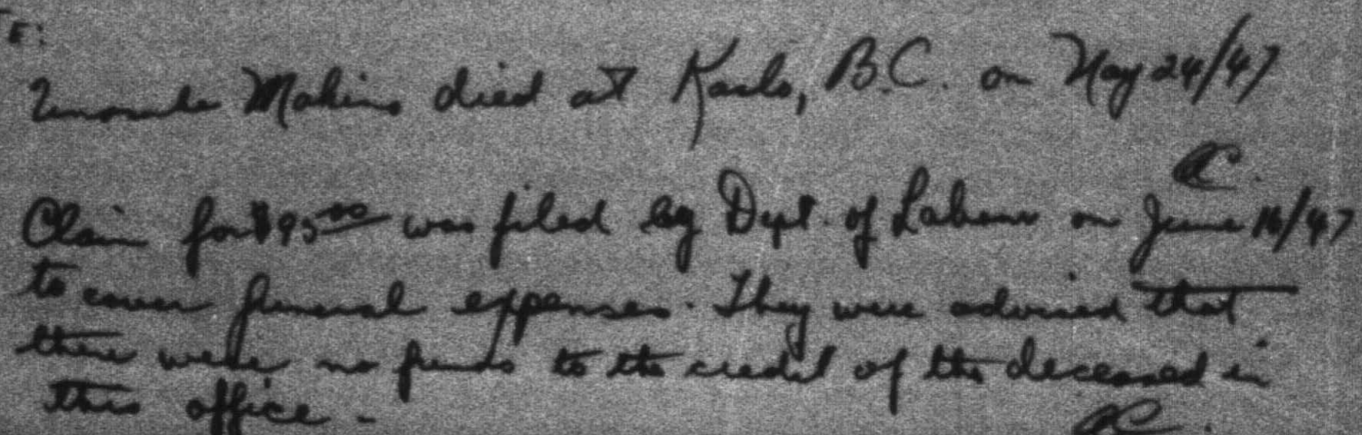 E:
Makino died at Kaslo, B.C. on May 24/47
Claim for $95.00 was filed by Dept. of Labour on June 16/47
to cover funeral expenses. They were advised that
there were no funds to the credit of the deceased in
this office.